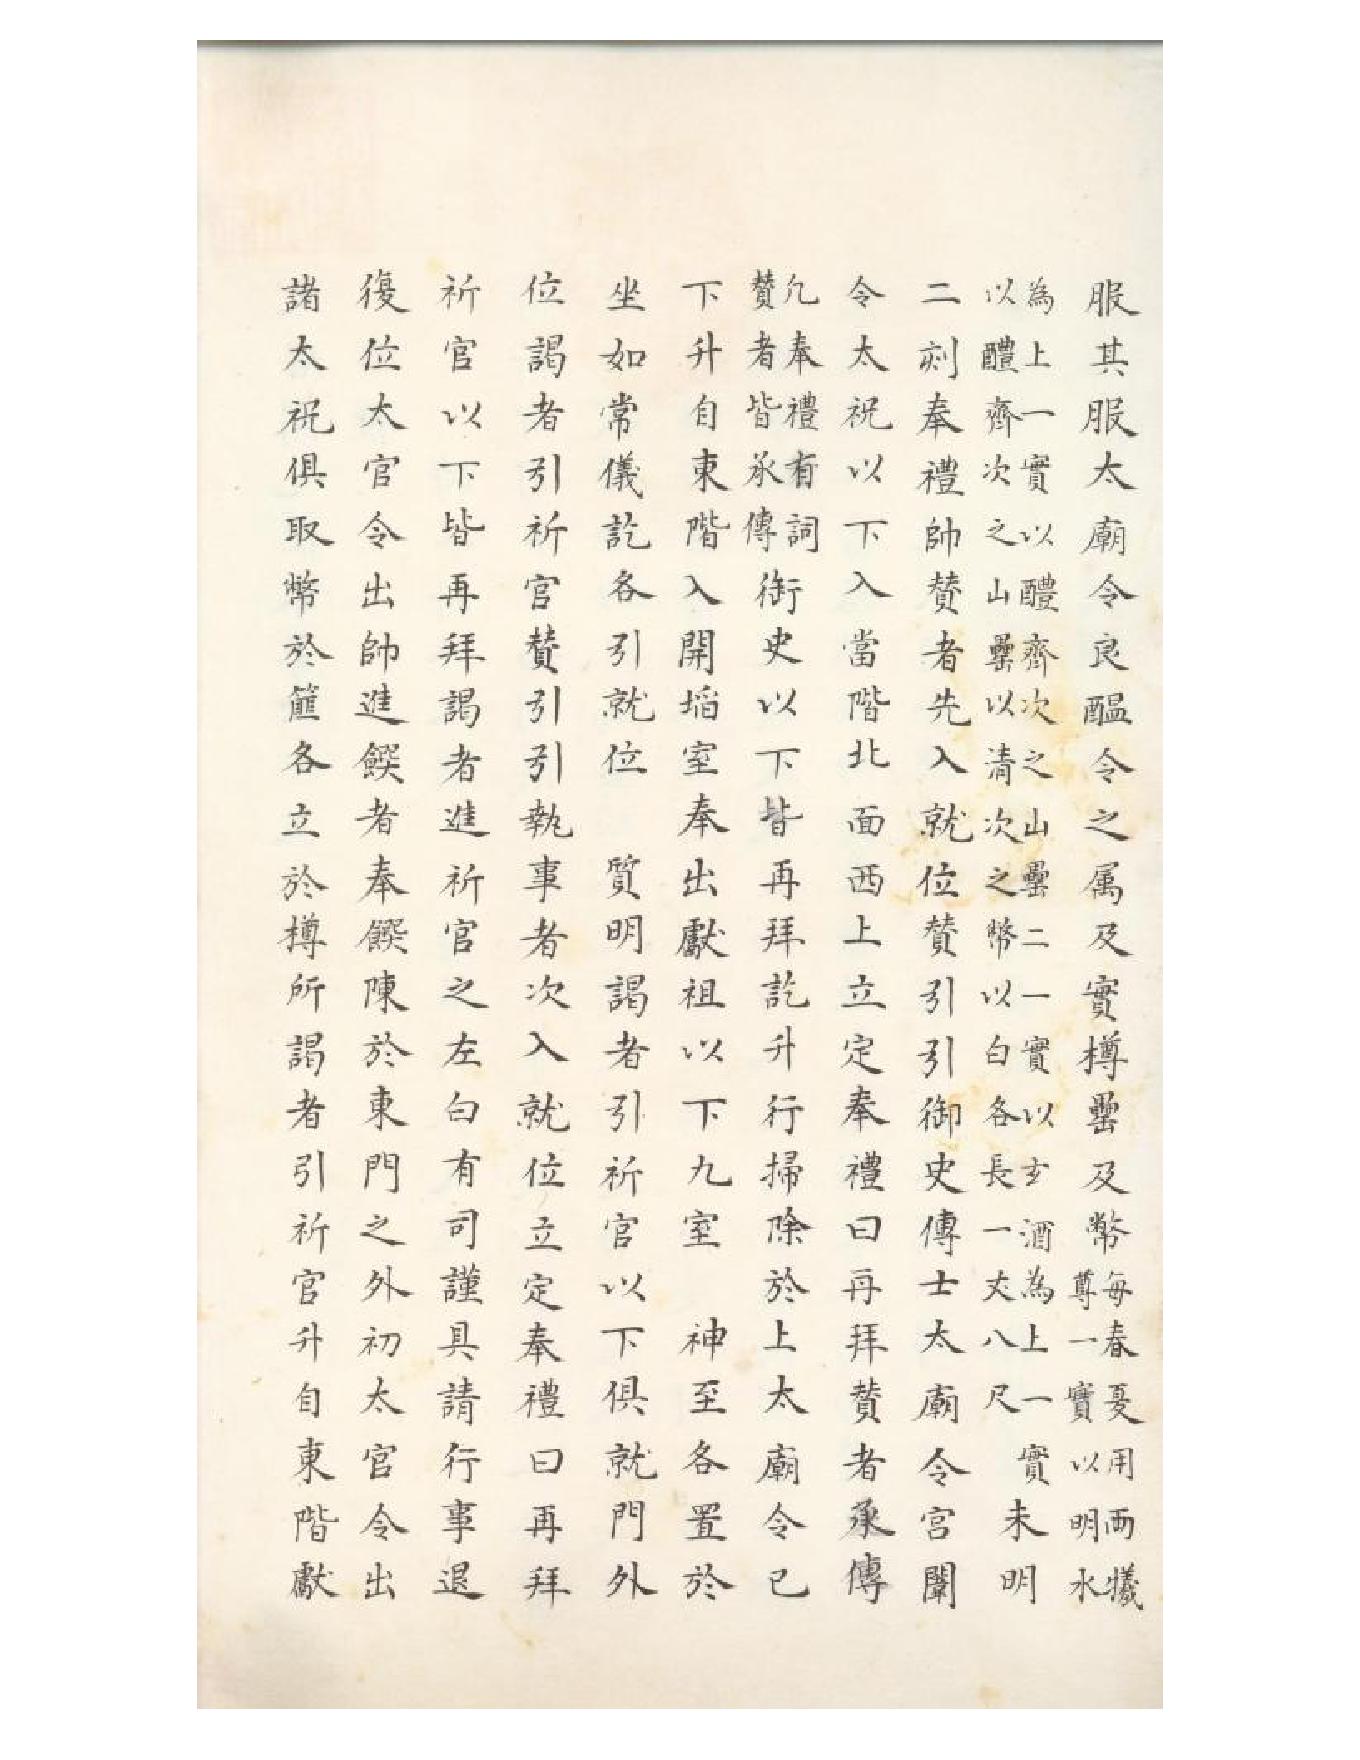 服其服太廟令良醞令之属及實樽罍及幣每春夏用兩犧尊一實以明水
為上一實以醴齊次之山罍二一實以玄酒為上一實以醴齊次之山罍以清次之幣以白各長一丈八尺未明
二刻奉禮帥賛者先入就位賛引引御史傳士太廟令宫闈
令太祝以下入當階北面西上立定奉禮曰再拜賛者承傳
凢奉禮有詞賛者皆承傳御史以下皆再拜訖升行掃除於上太廟令已
下升自東階入開埳室奉出獻祖以下九室 神至各置於
坐如常儀訖各引就位 質明謁者引祈官以下俱就門外
位謁者引祈官賛引引執事者次入就位立定奉禮曰再拜
祈官以下皆再拜謁者進祈官之左白有司謹具請行事退
復位太官令出帥進饌者奉饌陳於東門之外初太官令出
諸太祝俱取幣於篚各立於樽所謁者引祈官升自東階獻